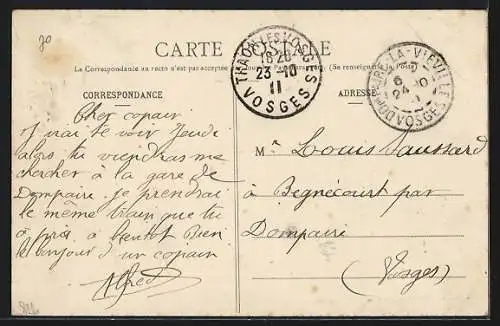 70
CARTE POSTALE
La Correspondance au recto n'est pas acceptée
(Se renseigner à la Poste)
THAON-LES-VOSGES
18 20
23-10
11
VOSGES
LA-VIÉVILLE
6
24 10
11
VOSGES
CORRESPONDANCE
ADRESSE
Cher copain
J irai te voir Jeudi
alors tu viendras me
chercher à la gare de
Dompaire je prendrai
le même train que tu
a pris à bientot Bien
le bonjour d'un copain
Alfred
Mr Louis
à Begnécourt par
Dompaire
(Vosges)